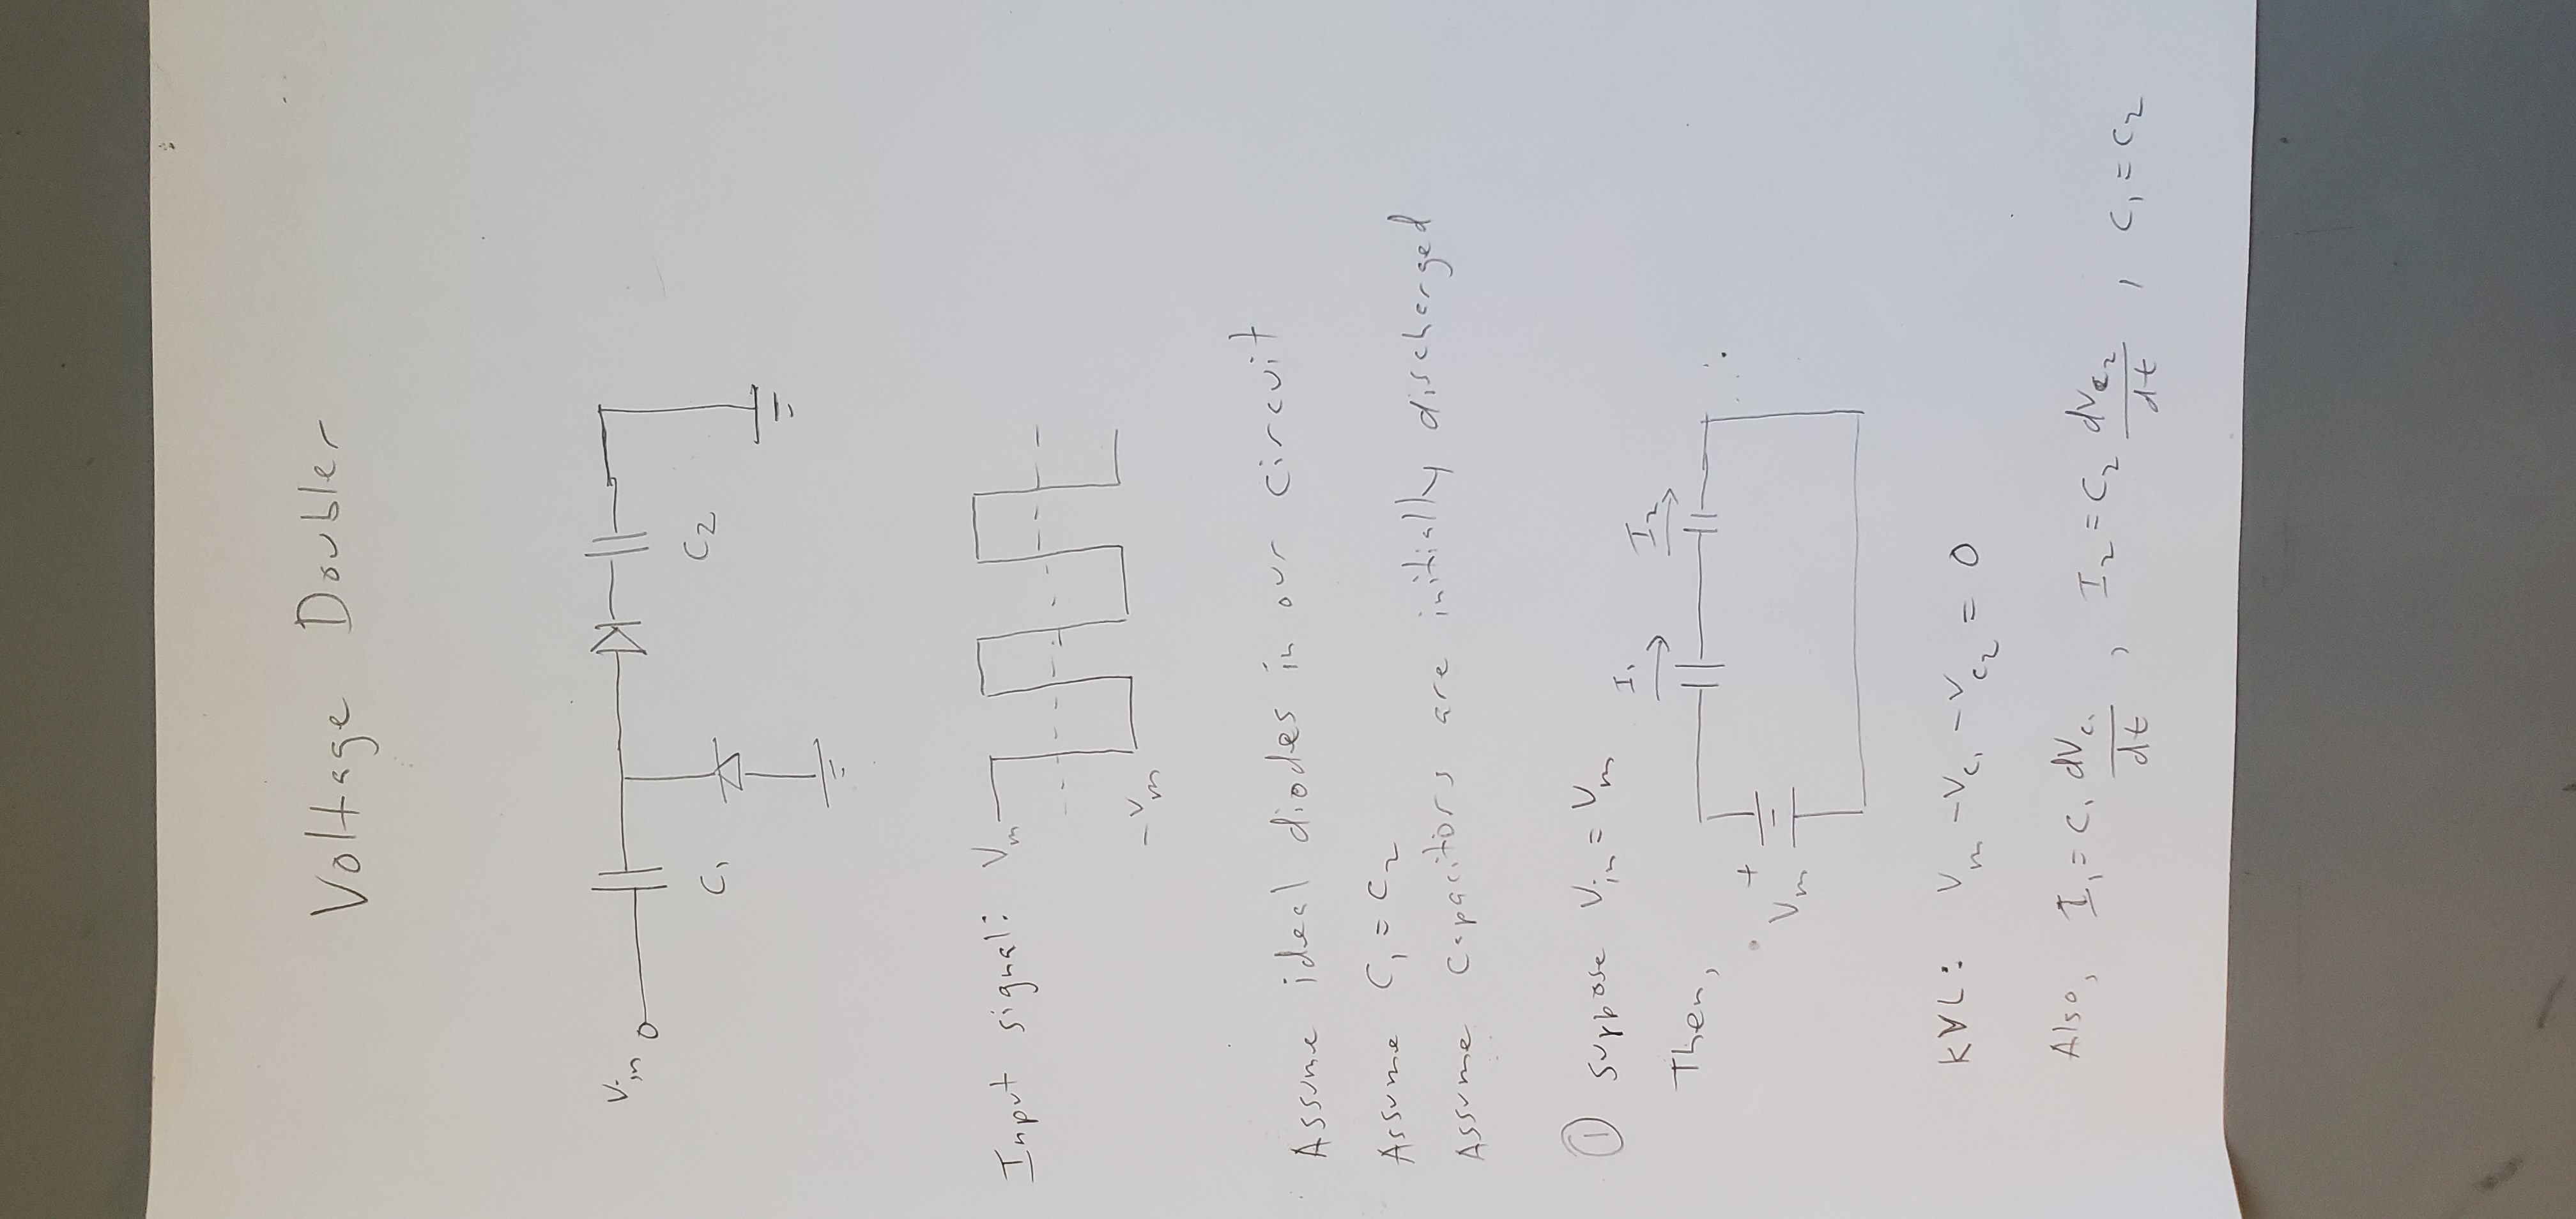 Voltage Doubler
Vin
C₁
C₂
Input signal: Vm
-Vm
Assume ideal diodes in our circuit
Assume C₁ = C₂
Assume capacitors are initially discharged
① Suppose Vin = Vm
I₁ I₂
Then,
+
Vm
KVL: Vm - Vc₁ - Vc₂ = 0
Also, I₁ = C₁ dVc₁/dt , I₂ = C₂ dVc₂/dt , C₁ = C₂